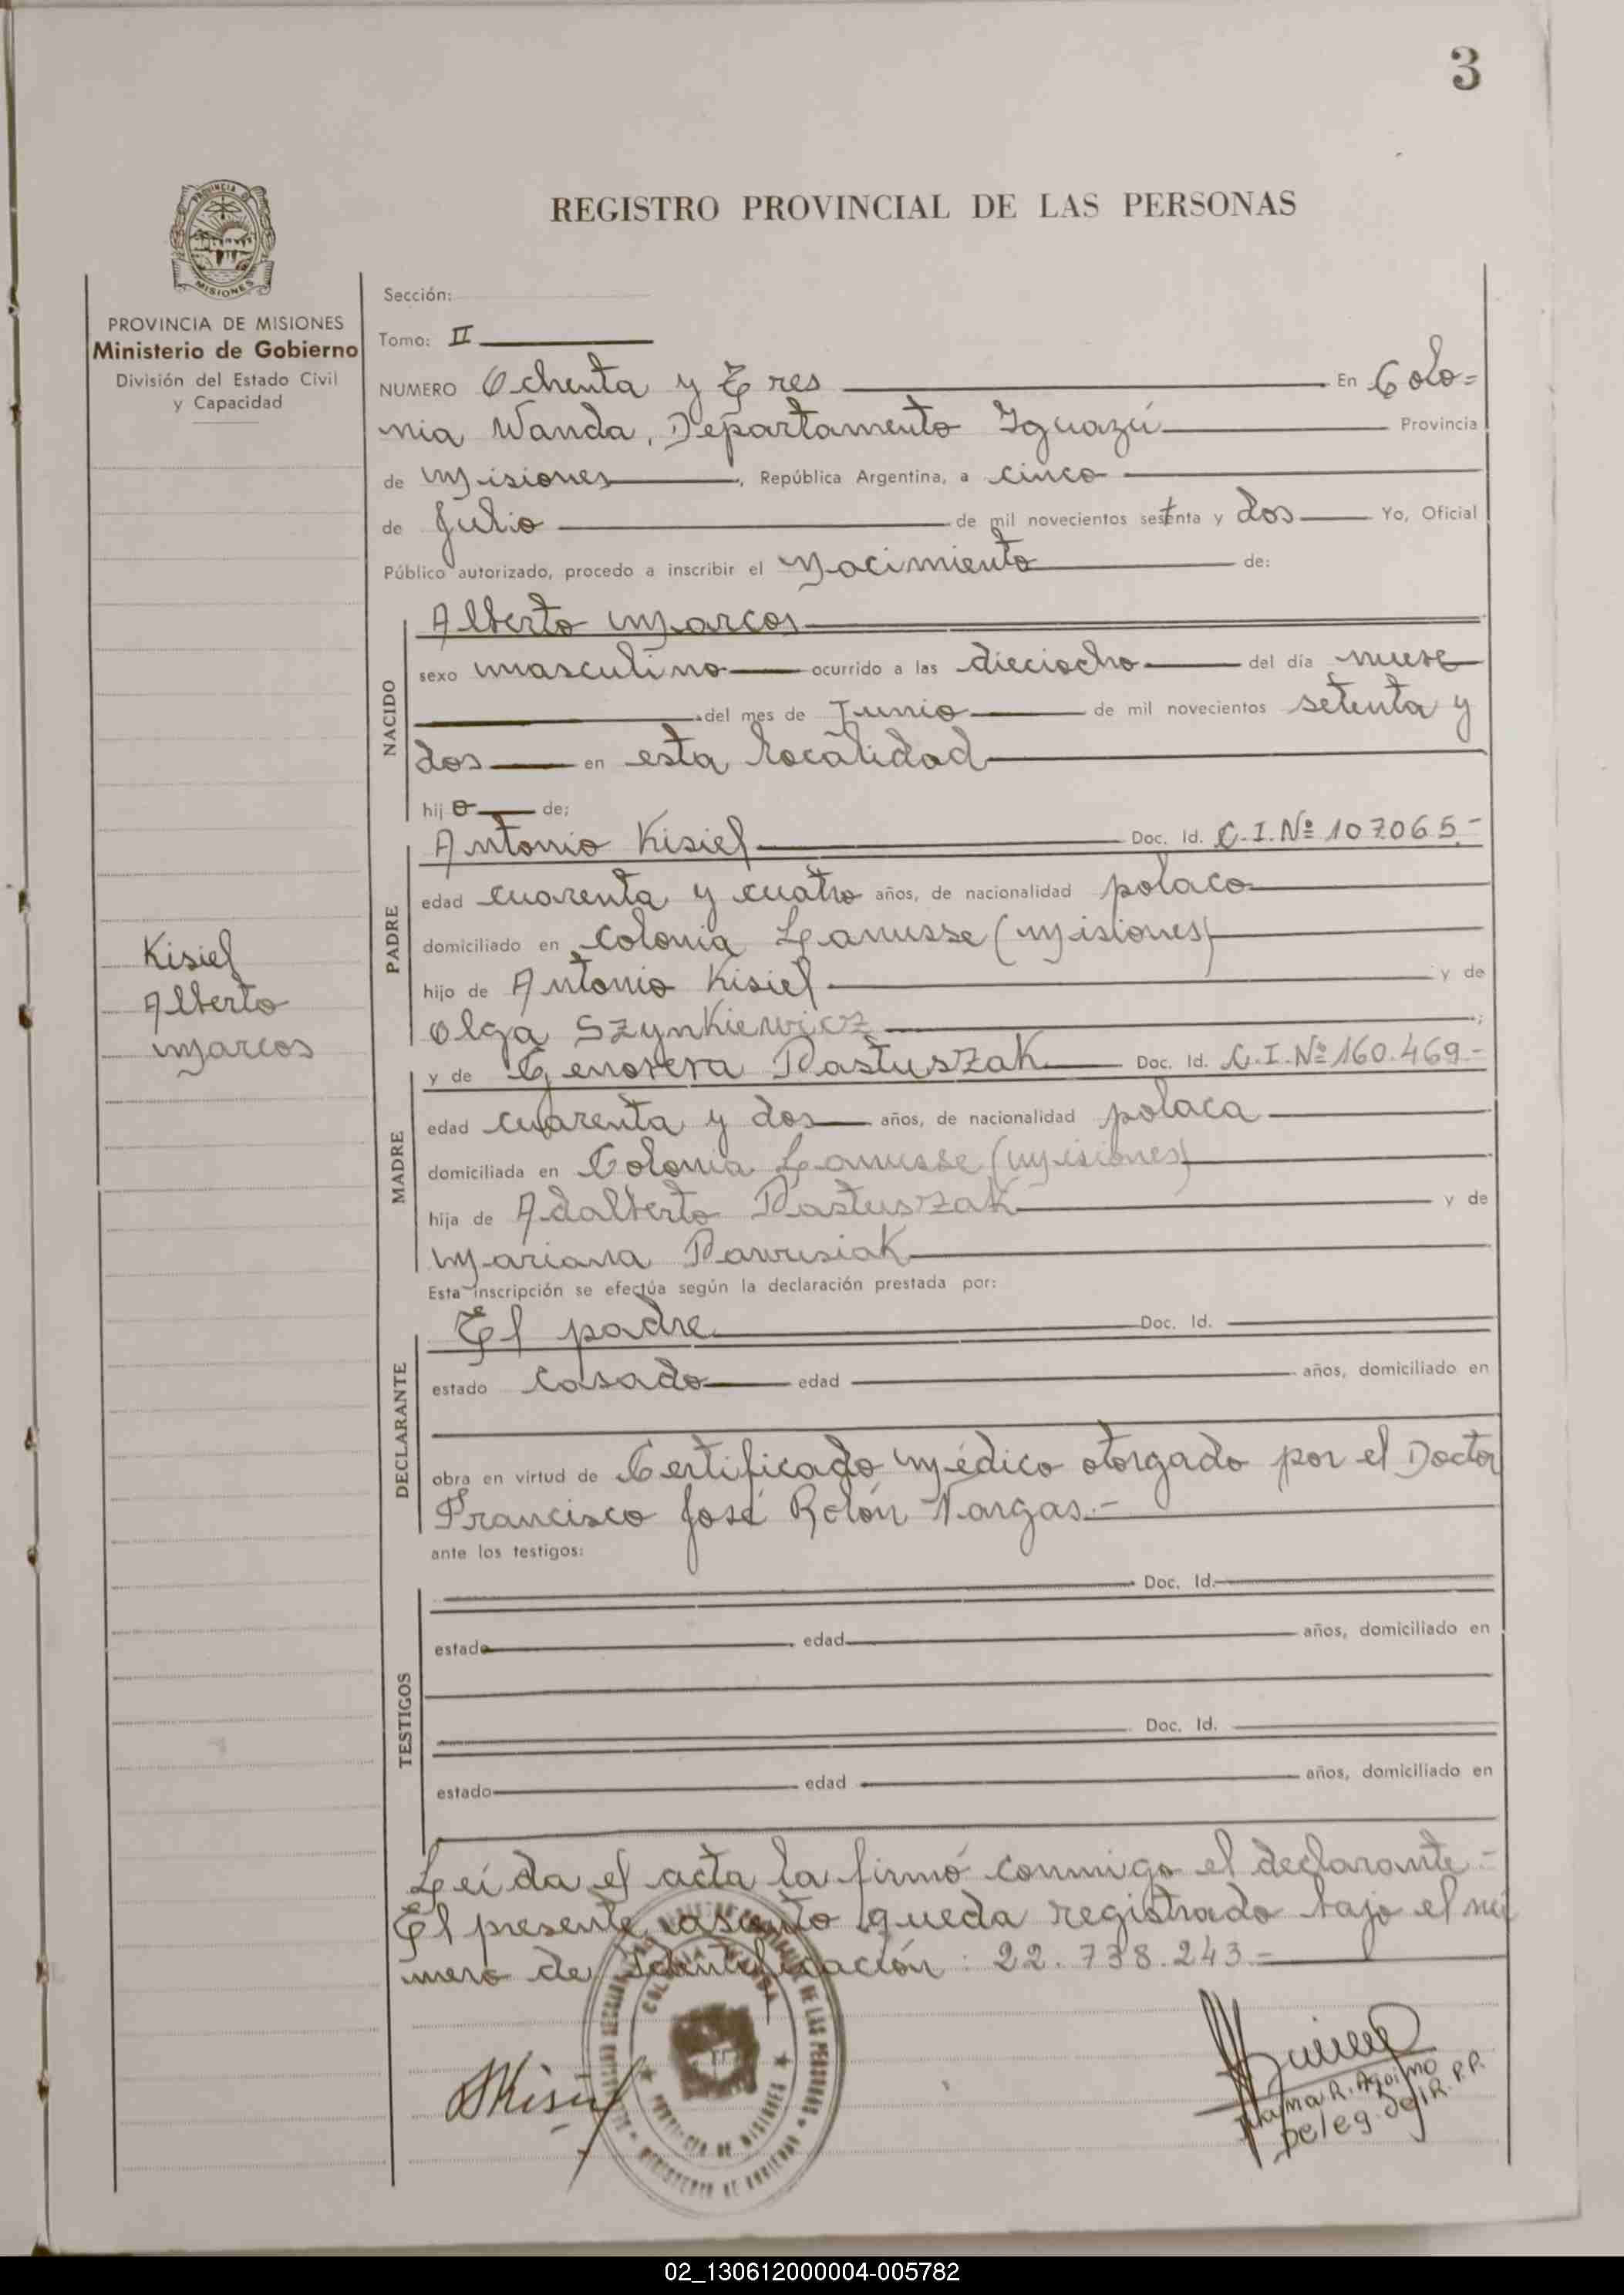 3
REGISTRO PROVINCIAL DE LAS PERSONAS
PROVINCIA DE MISIONES
Ministerio de Gobierno
División del Estado Civil
y Capacidad
Kisiel
Alberto
Marcos
Sección:
Tomo: II
NUMERO Ochenta y Tres En Colo=
nia Wanda, Departamento Iguazú Provincia
de Misiones, República Argentina, a cinco
de Julio de mil novecientos setenta y dos Yo, Oficial
Público autorizado, procedo a inscribir el Nacimiento de:
NACIDO
Alberto Marcos
sexo masculino ocurrido a las dieciocho del día nueve
del mes de Junio de mil novecientos setenta y
dos en esta localidad
hijo de;
PADRE
Antonio Kisiel Doc. Id. C.I.Nº 107.065.-
edad cuarenta y cuatro años, de nacionalidad polaco
domiciliado en Colonia Lanusse (Misiones)
hijo de Antonio Kisiel y de
Olga Szynkiewicz ;
MADRE
y de Genovera Pastuszak Doc. Id. C.I.Nº 160.469.-
edad cuarenta y dos años, de nacionalidad polaca
domiciliada en Colonia Lanusse (Misiones)
hija de Adalberto Pastuszak y de
Mariana Pawusiak
Esta inscripción se efectúa según la declaración prestada por:
DECLARANTE
El padre Doc. Id.
estado casado edad años, domiciliado en
obra en virtud de Certificado Médico otorgado por el Doctor
Francisco José Rolón Vargas.-
ante los testigos:
TESTIGOS
Doc. Id.
estado edad años, domiciliado en
Doc. Id.
estado edad años, domiciliado en
Leída el acta la firmó conmigo el declarante.-
El presente asiento queda registrado bajo el nú
mero de Identificación: 22.738.243=
COLONIA WANDA
PROVINCIA DE MISIONES
DE LAS PERSONAS
MINISTERIO DE GOBIERNO
AKisiel
Deleg. del R.P.P.
02_130612000004-005782